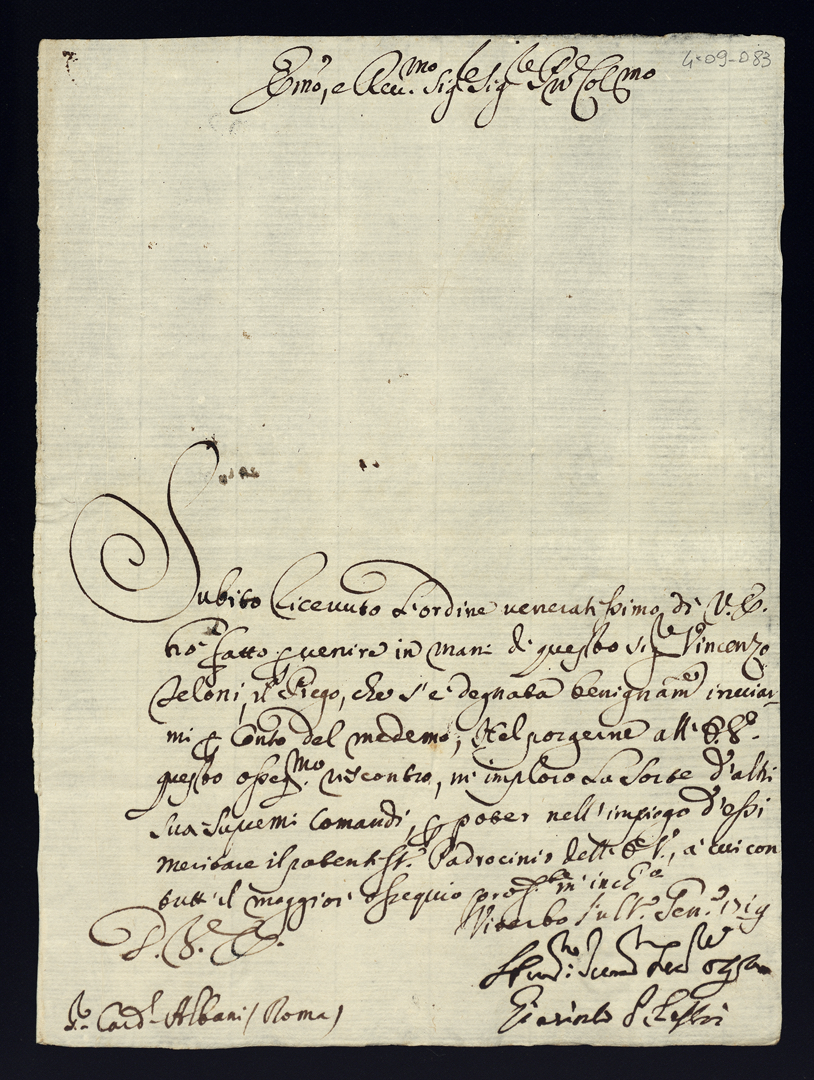 4-09-083
Emo, e Reu.mo Sig.re Sig.re Pne Col.mo
Subito riceuuto l'ordine ueneratissimo di V. E.
hò fatto peruenire in mani di questo Sig.re Vincenzo
Zeloni, il Piego, che s'è degnata benignam.e inuiar-
mi p Conto del medemo; Nel porgerne all' E. V.
questo osseq.mo riscontro, m'imploro la sorte d'altri
suoi supremi Comandi, p poter nell'impiego d'essi
meritare il potentiss.o Padrocinio dell' E. V., à cui con
tutt'il maggior ossequio prof.te m'inch.o
Viterbo Gen.o 1719
D. V. E.
Sr. Card.l Albani (Roma)
Giacinto